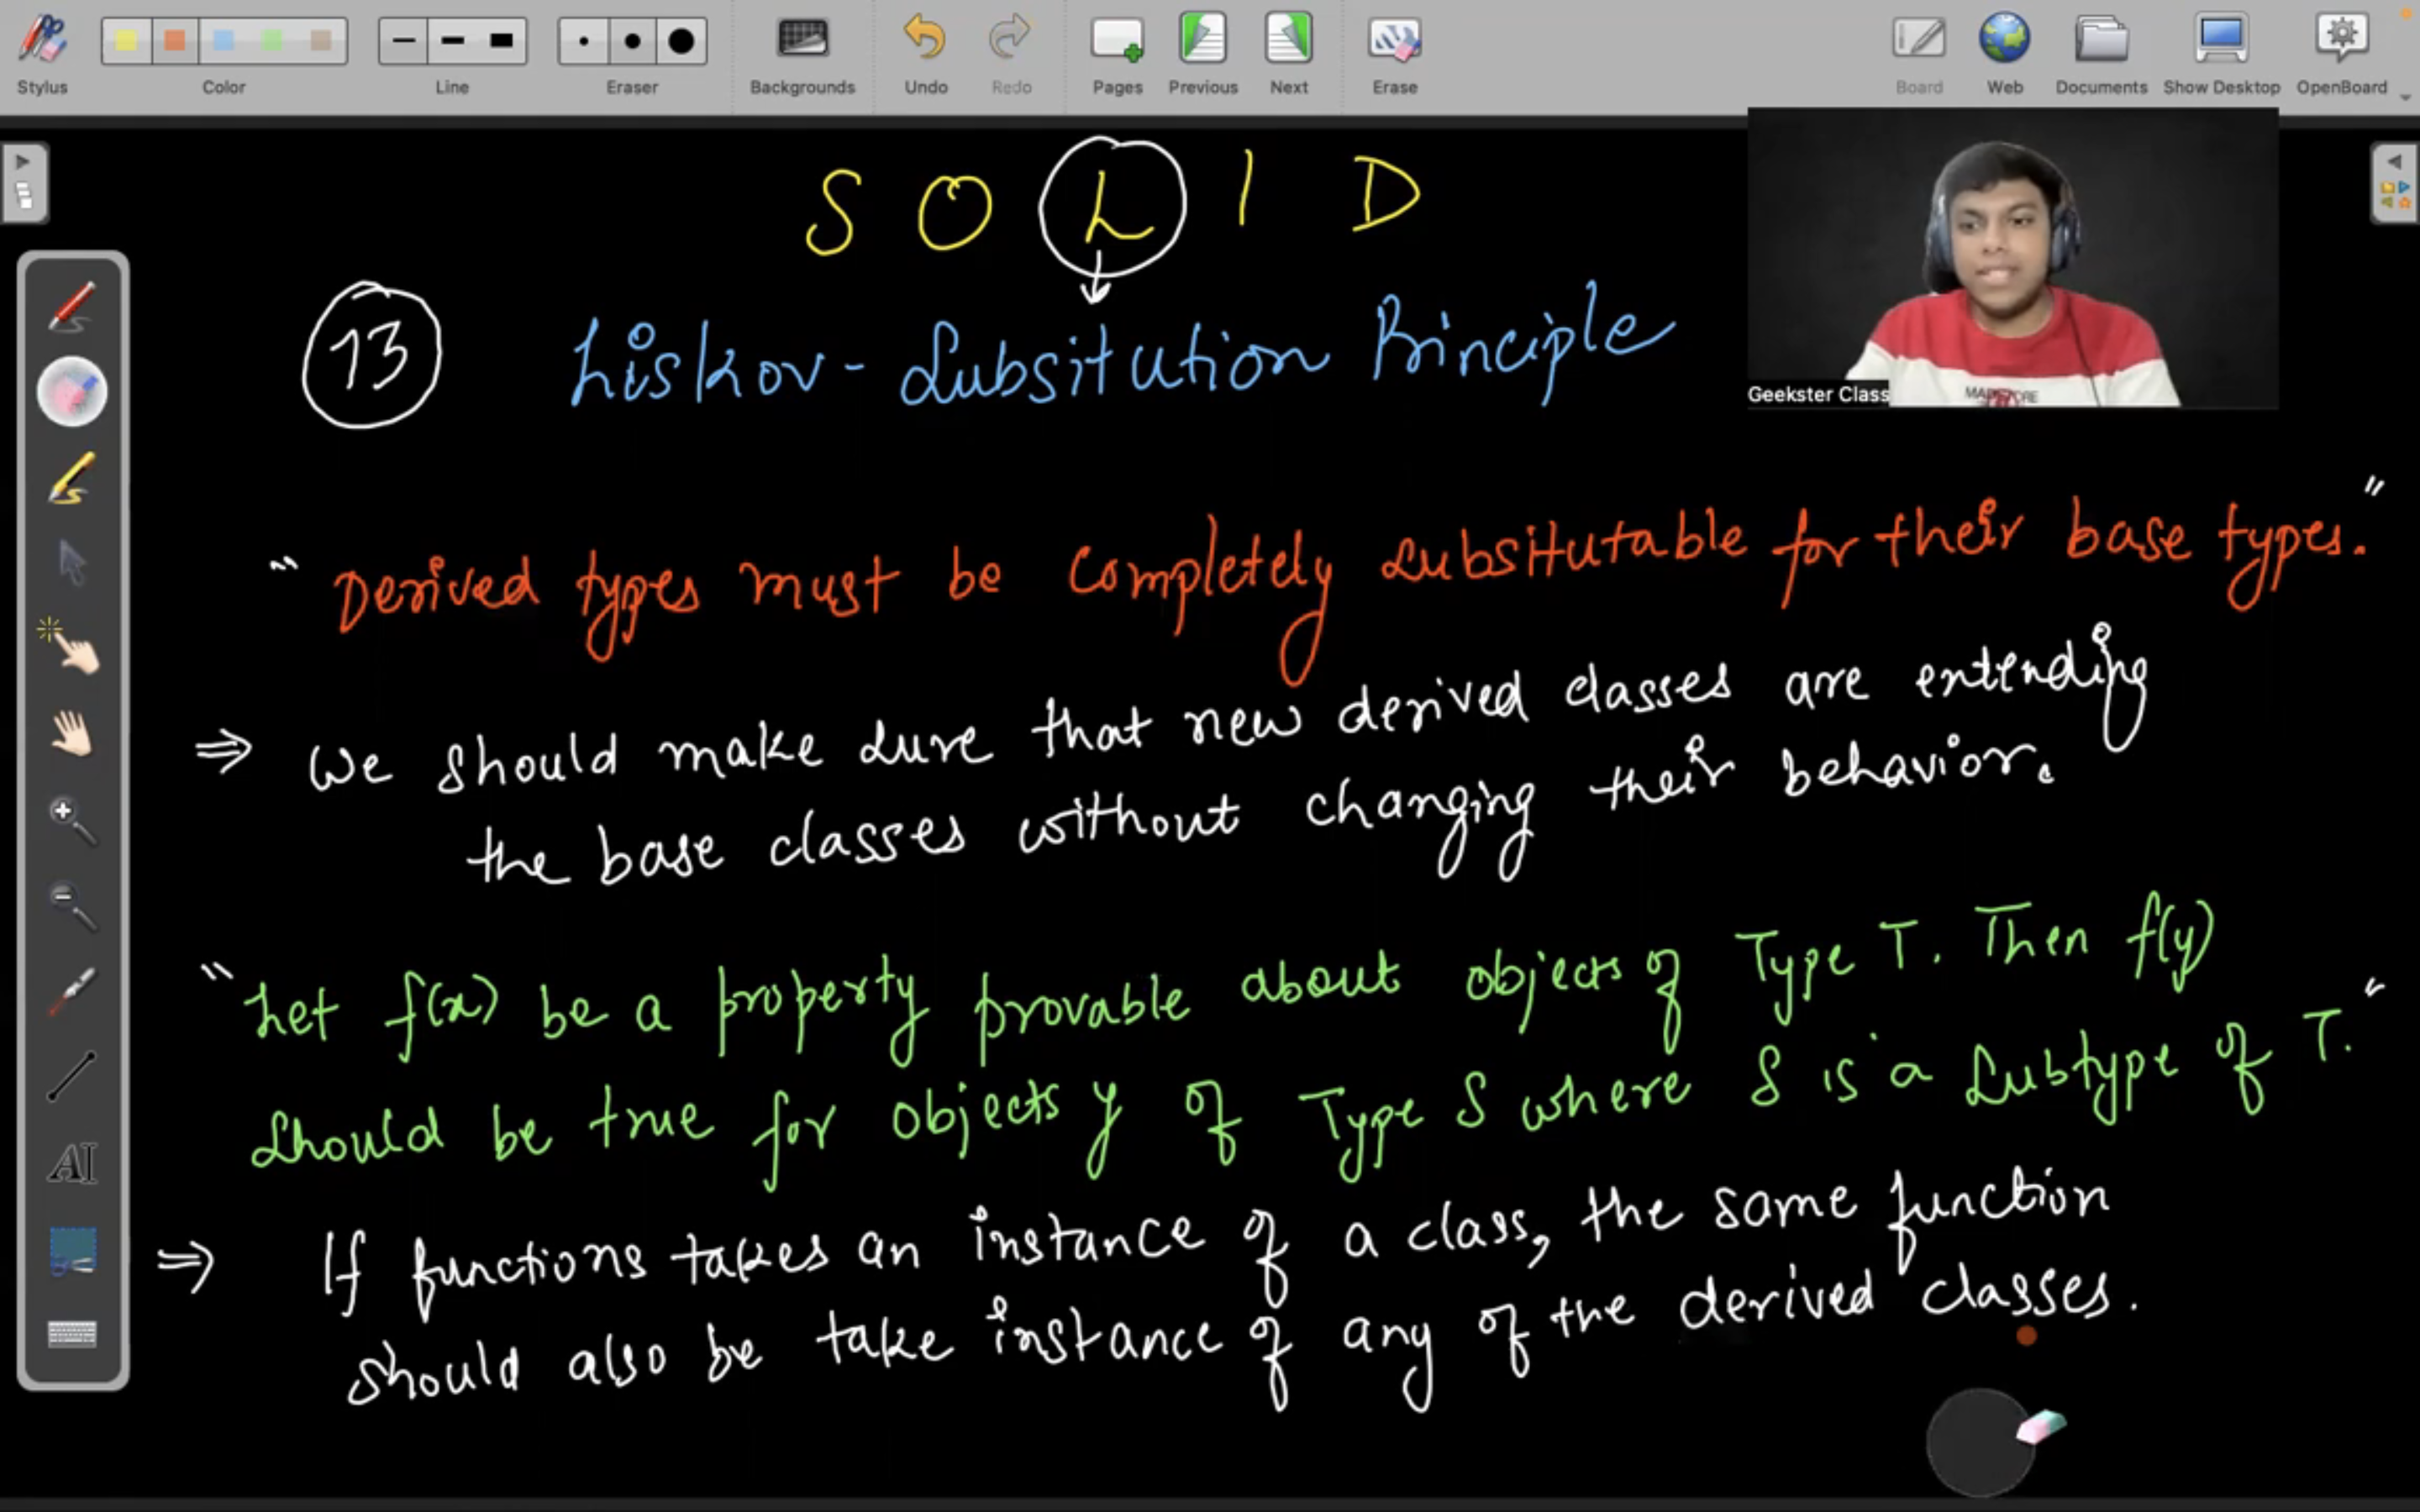 Stylus Color Line Eraser Backgrounds Undo Redo Pages Previous Next Erase Board Web Documents Show Desktop OpenBoard
S O L I D
13 Liskov - Subsitution Principle
Geekster Class
"Derived types must be completely subsitutable for their base types."
⇒ We should make sure that new derived classes are extending
the base classes without changing their behavior.
"Let f(x) be a property provable about objects of Type T. Then f(y)
should be true for objects y of Type S where S is a subtype of T."
⇒ If functions takes an instance of a class, the same function
should also be take instance of any of the derived classes.
AI